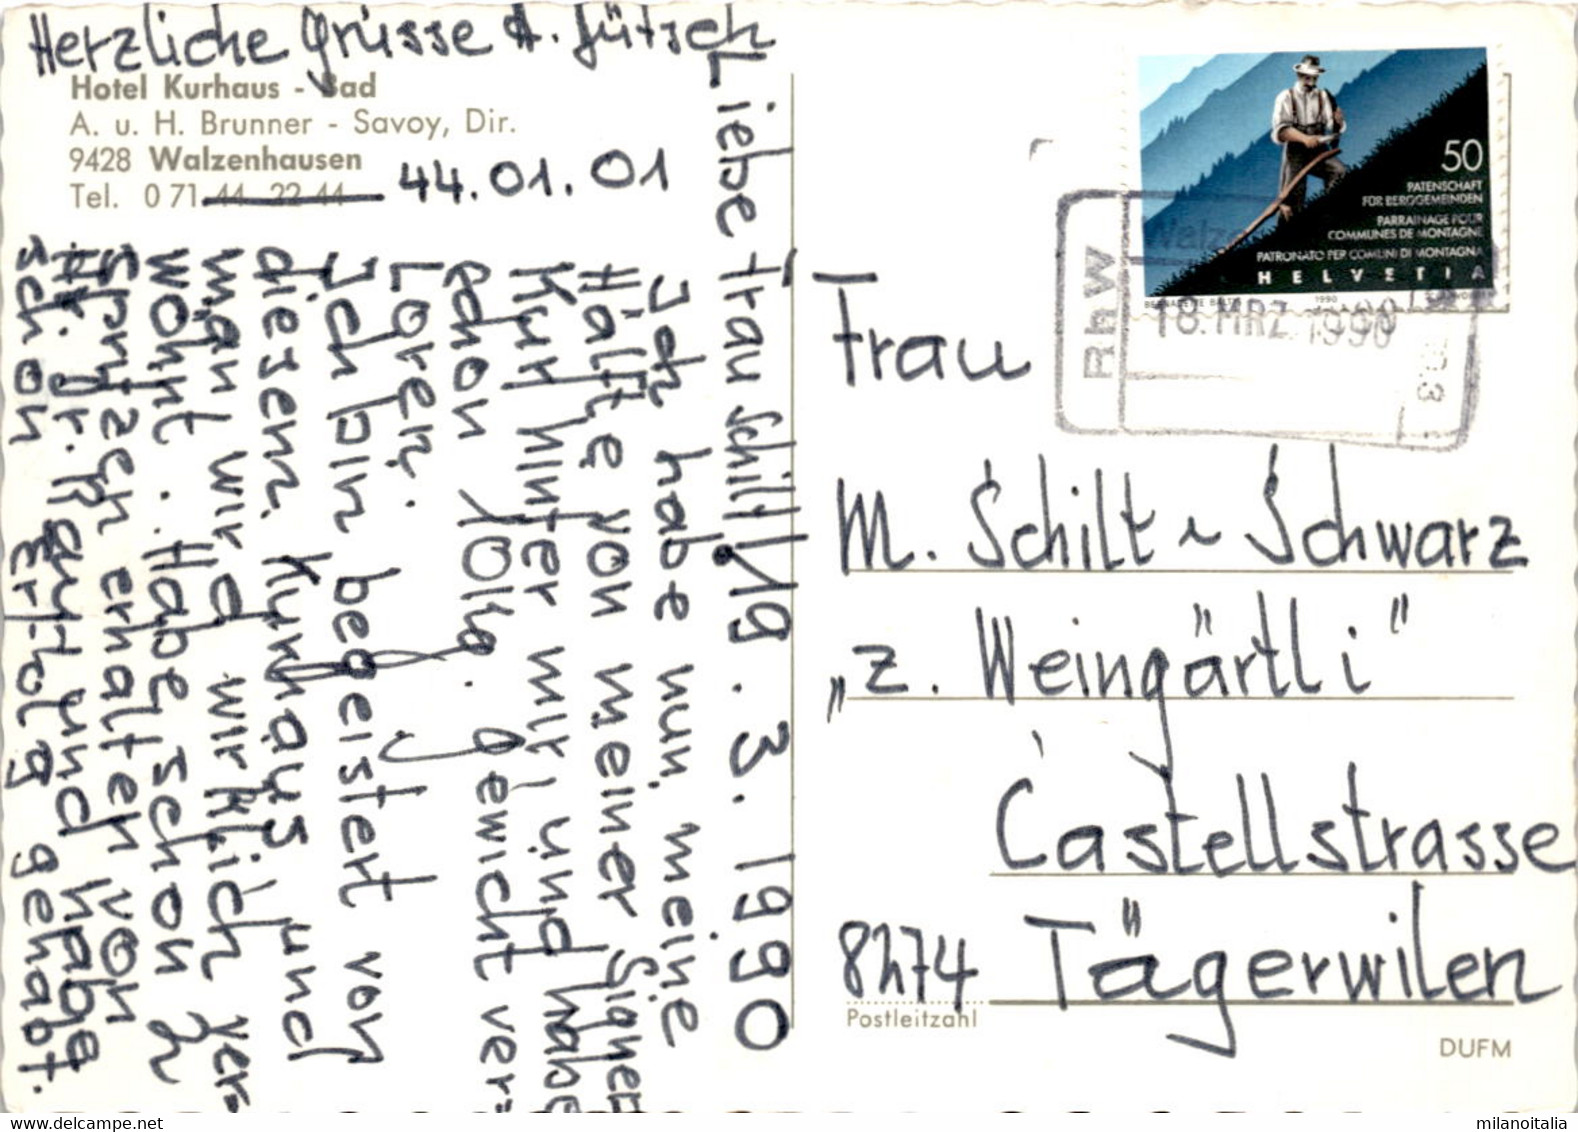 Herzliche Grüsse A. Jütsch
Hotel Kurhaus - Bad
A. u. H. Brunner - Savoy, Dir.
9428 Walzenhausen
Tel. 0 71 44 22 44 44.01.01
Liebe Frau Schilt 19. 3. 1990
Ich habe nun meine
Hälfte von meiner
Kur hinter mir und habe
schon 10kg. Gewicht ver=
loren.
Ich bin begeistert von
diesem Kurhaus und
man wird wirklich ver=
wöhnt. Habe schon
Spritzen erhalten von
Hr. Dr. und habe
schon Erfolg gehabt.
50
PATENSCHAFT
FÜR BERGGEMEINDEN
PARRAINAGE POUR
COMMUNES DE MONTAGNE
PATRONATO PER COMUNI DI MONTAGNA
HELVETIA
1990
RhW
18. MRZ. 1990
Frau
M. Schilt - Schwarz
„z. Weingärtli"
Castellstrasse
8274 Tägerwilen
Postleitzahl
DUFM
www.delcampe.net
milanoitalia